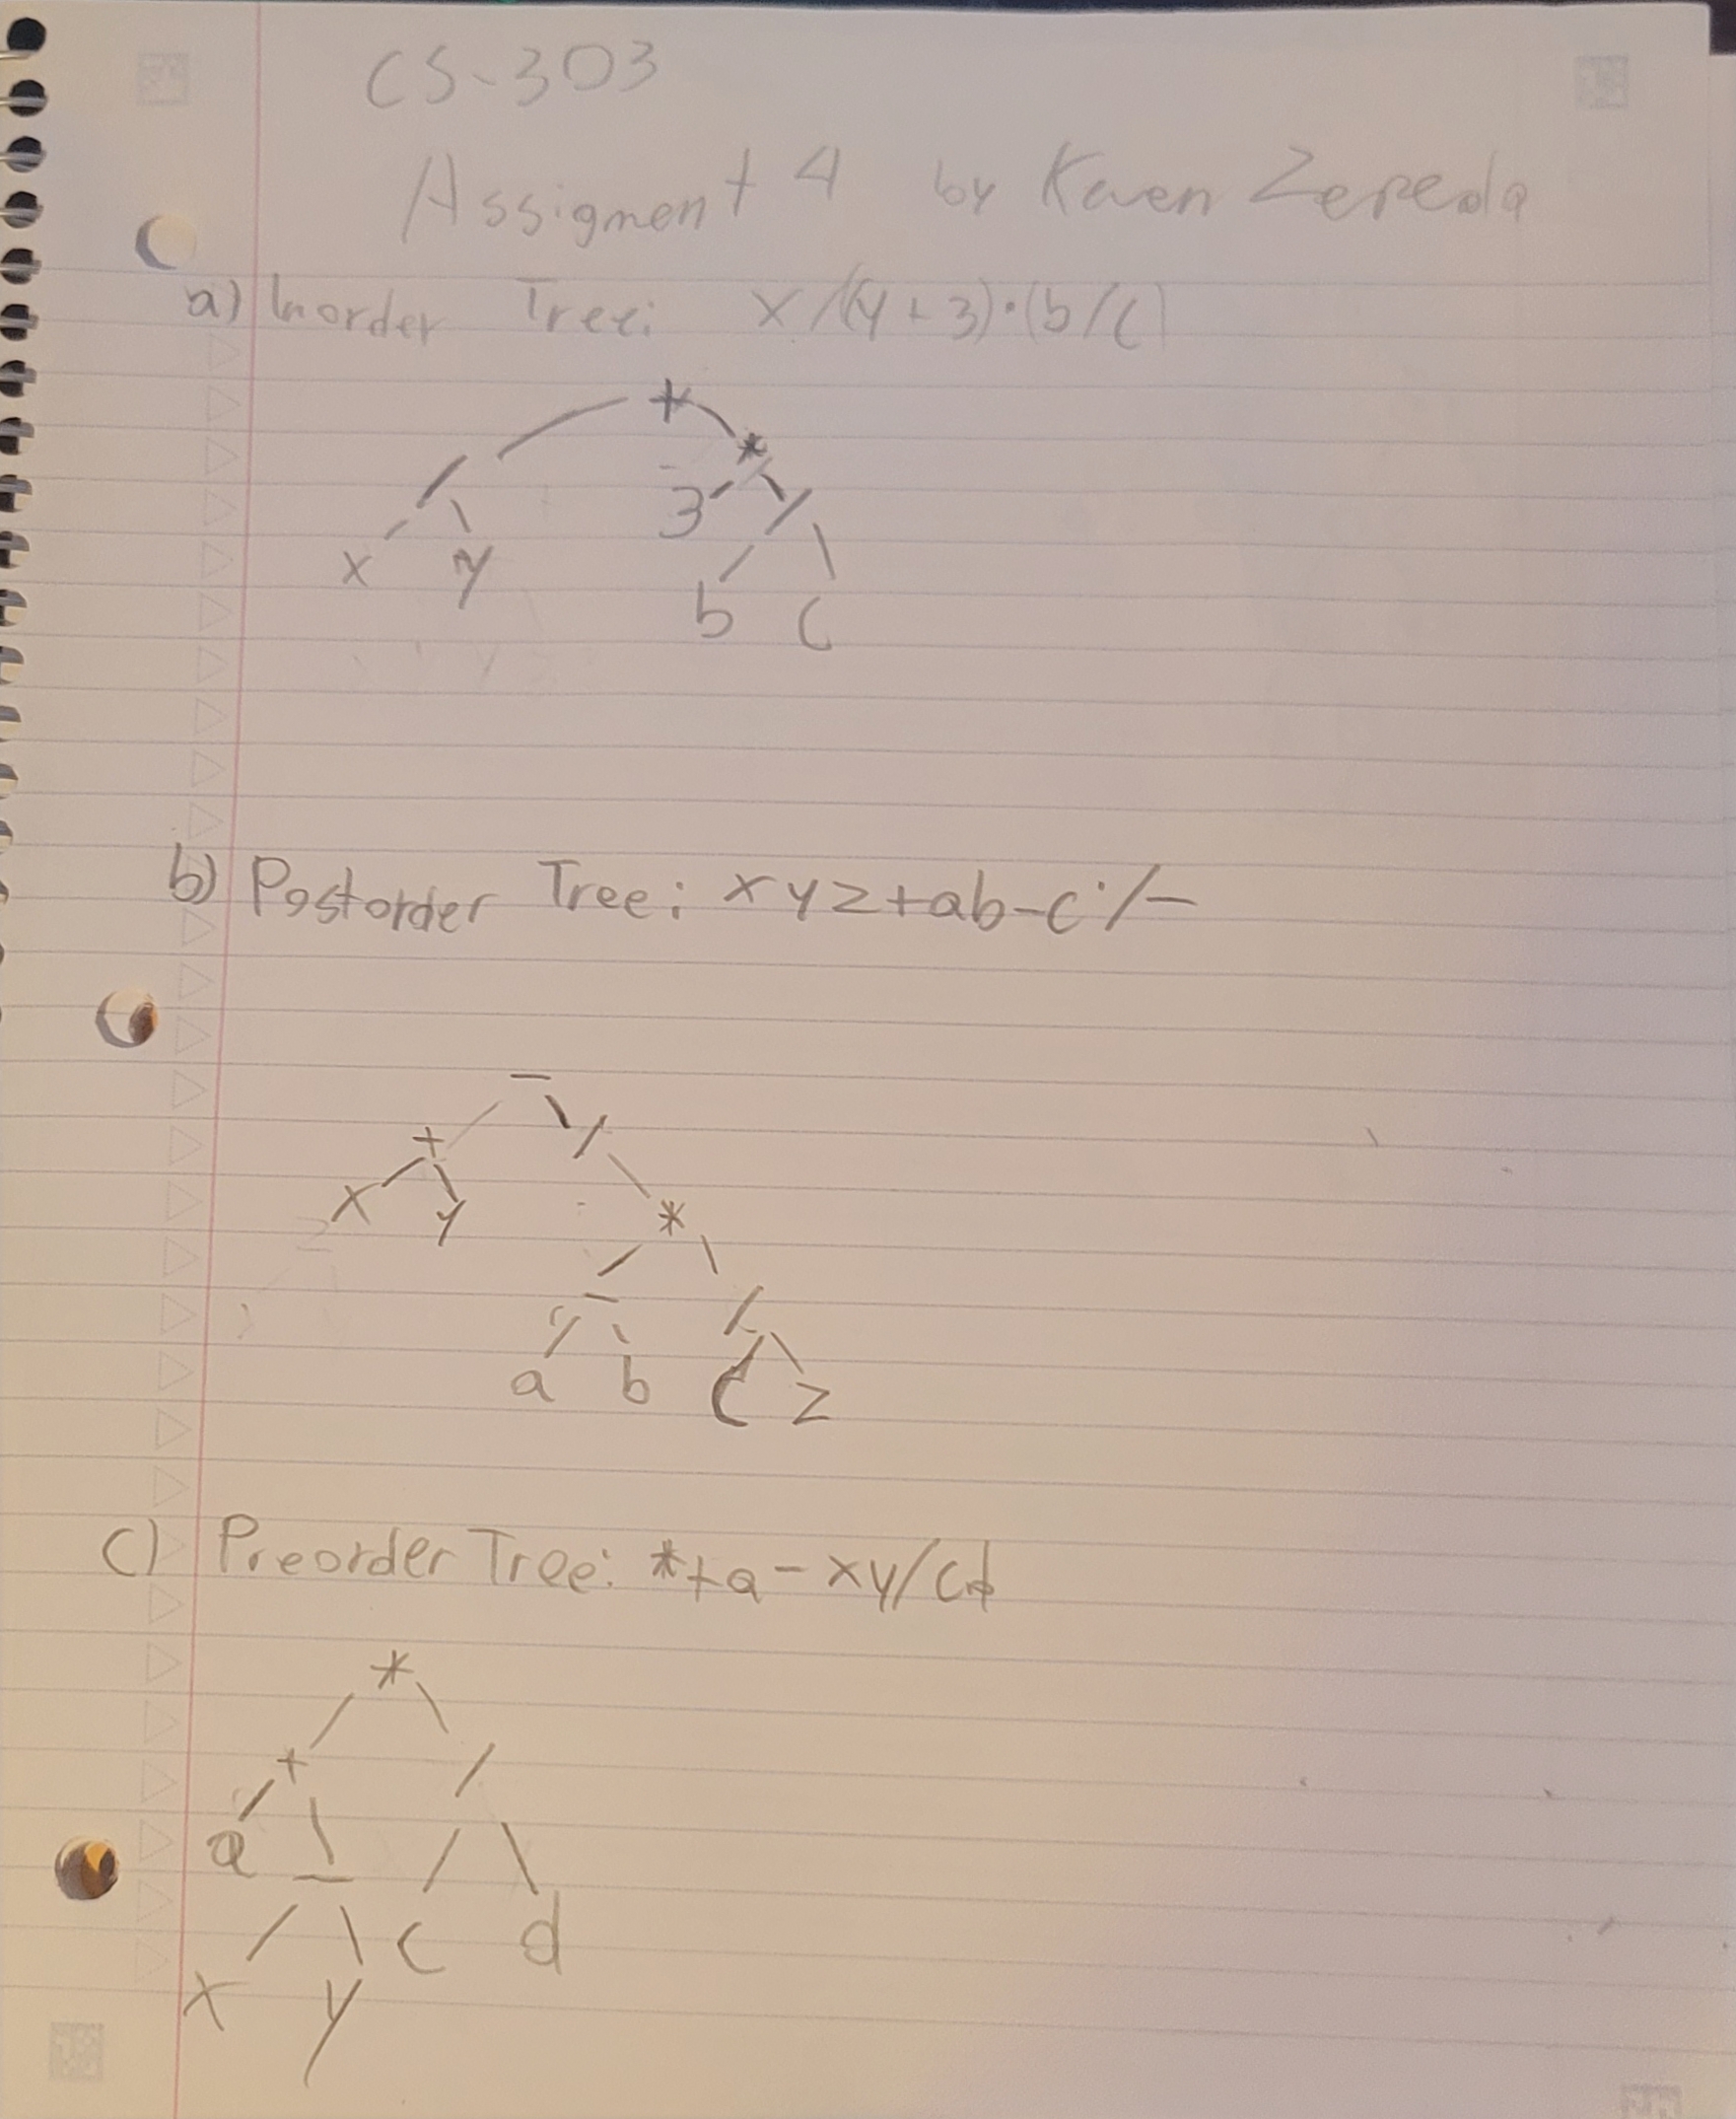 CS-303
Assigment 4 by Keven Zepeda
a) Inorder Tree: x/(y+3)·(b/c)
+
*
/ 3 /
x y
b c
b) Postorder Tree: xyz+ab-c·/-
-
+ /
x y *
- /
a b c z
c) Preorder Tree: *+a-xy/cd
*
+ /
a -
c d
x y